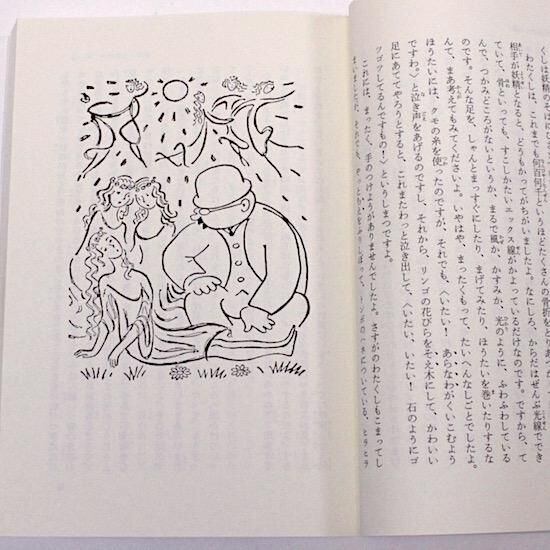 くしは妖精の
わたくしは、これまでも何百何千というほどたくさんの骨折
相手が妖精となると、どうもかってがちがいましたよ。なにしろ、からだはぜんぶ光線ででき
ていて、骨といっても、すこしかたいエックス線がかよっているだけなのです。ですから、て
んで、つかみどころがないというか、まるで風か、かすみか、光のように、ふわふわしている
のです。そんな足を、しゃんとまっすぐにしたり、まげてみたり、ほうたいを巻いたりするな
んて、まあ考えてもみてくださいよ。いやはや、まったくもって、たいへんなしごとでしたよ。
ほうたいには、クモの糸を使ったのですが、それでも、〈いたい! あらなわがくいこむよう
ですわ。〉と泣き声をあげるのですし、それから、リンゴの花びらをそえ木にして、かわいい
足にあててやろうとすると、これまたわっと泣き出して、〈いたい、いたい! 石のようにゴ
ツゴツしてるんですもの!〉というしまつですよ。
これには、まったく、手のつけようがありませんでしたよ。さすがのわたくしもこまってし
をふりしぼって、トンボのハネについている、ヒラヒラ